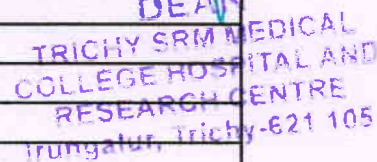 DEAN
TRICHY SRM MEDICAL
COLLEGE HOSPITAL AND
RESEARCH CENTRE
Irungalur, Trichy-621 105